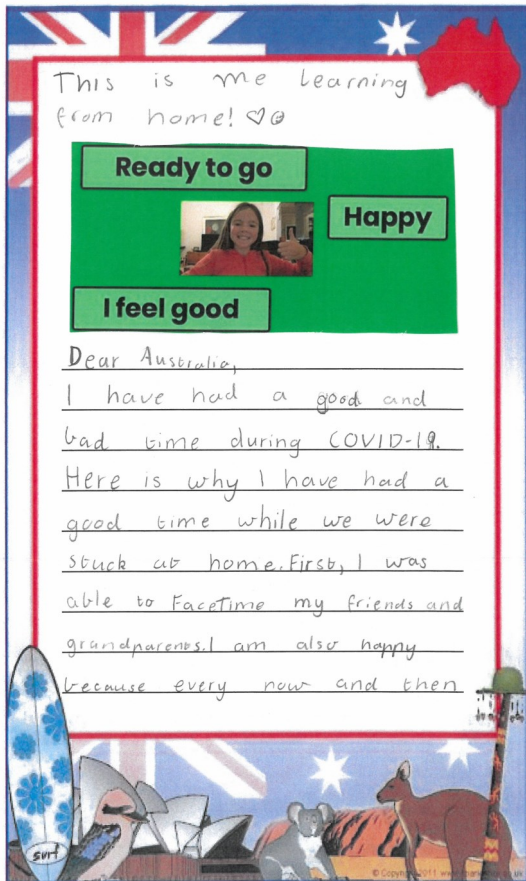 This is me Learning
from home!
Ready to go
Happy
I feel good
Dear Australia,
I have had a good and
bad time during COVID-19.
Here is why I have had a
good time while we were
stuck at home. First, I was
able to FaceTime my friends and
grandparents. I am also happy
because every now and then
surf
© Copyright 2011 www.